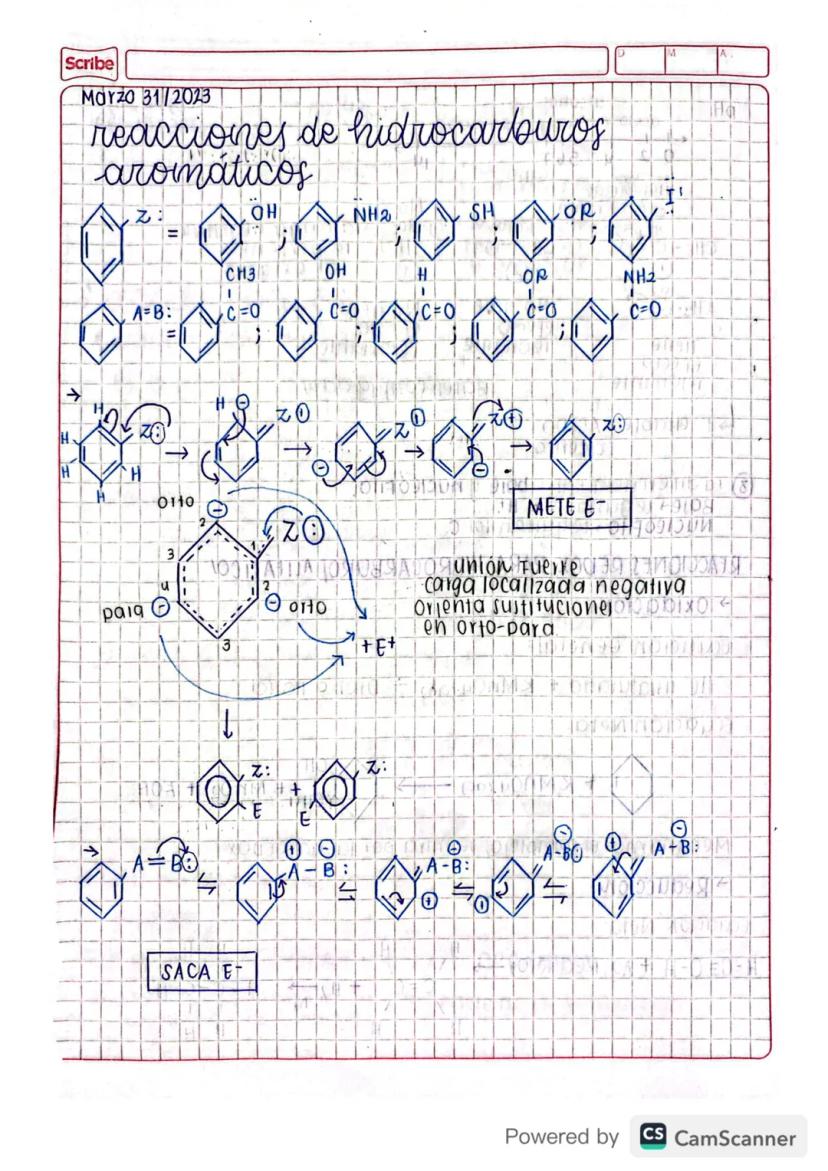 Scribe
D M A
Marzo 31/2023
reacciones de hidrocarburos
aromáticos
Z: = ÖH ; N̈H2 ; SH ; ÖR ; I:
CH3 OH H OR NH2
A=B: = C=O ; C=O ; C=O ; C=O ; C=O
→ H H H H H Z: → H ⊖ Z ⊕ → ⊖ Z ⊕ → Z ⊕ ⊖ → Z:
METE E-
orto ⊖
2 1 Z:
3
4 2
para ⊖ ⊖ orto
3
+E+
unión fuerte
carga localizada negativa
orienta sustituciones
en orto-para
↓
Z: E + Z: E
→ A=B: ⇌ ⊕ ⊖ A-B: ⇌ ⊕ A-B: ⊕ ⇌ ⊖ A-B: ⊕ ⇌ ⊕ ⊖ A-B:
SACA E-
Powered by CS CamScanner